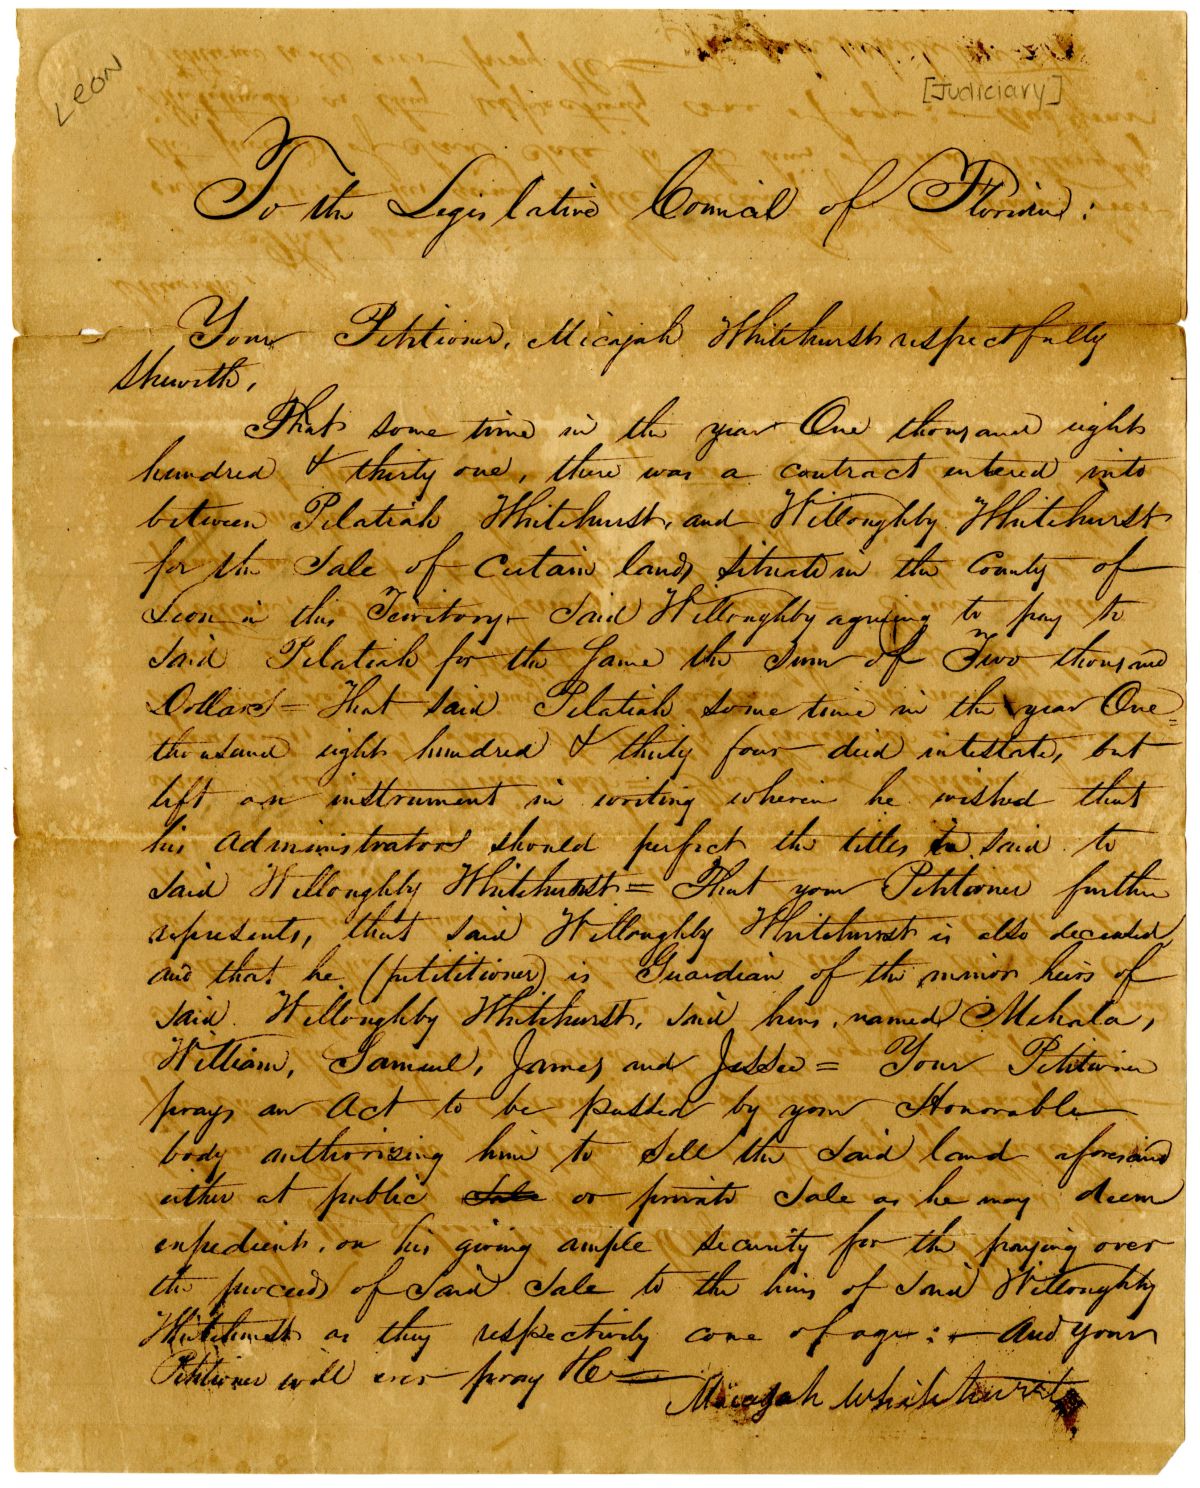 Leon
[Judiciary]
To the Legislative Council of Florida:
Your Petitioner, Micajah Whitehurst respectfully
Sheweth,
That some time in the year One thousand eight
hundred & thirty one, there was a contract entered into
between Pelatiah Whitehurst, and Willoughby Whitehurst
for the Sale of certain lands situate in the County of
Leon in this Territory - Said Willoughby agreeing to pay to
Said Pelatiah for the Same the Sum of Two thousand
Dollars = That said Pelatiah some time in the year One=
thousand eight hundred & thirty four died intestate, but
left an instrument in writing wherein he wished that
his administrators should perfect the titles to said to
Said Willoughby Whitehurst = That your Petitioner further
represents, that said Willoughby Whitehurst is also deceased,
and that he (petititioner) is Guardian of the minor heirs of
said Willoughby Whitehurst, said heirs, named Mehala,
William, Samuel, James and Jessee = Your Petitioner
prays an Act to be passed by your Honorable
body authorising him to Sell the Said land aforesaid
either at public Sale or private Sale as he may deem
expedient, on his giving ample security for the praying over
the proceeds of Said Sale to the heirs of Said Willoughby
Whitehurst as they respectively come of age: - And your
Petitioner will ever pray &c
Micajah Whitehurst